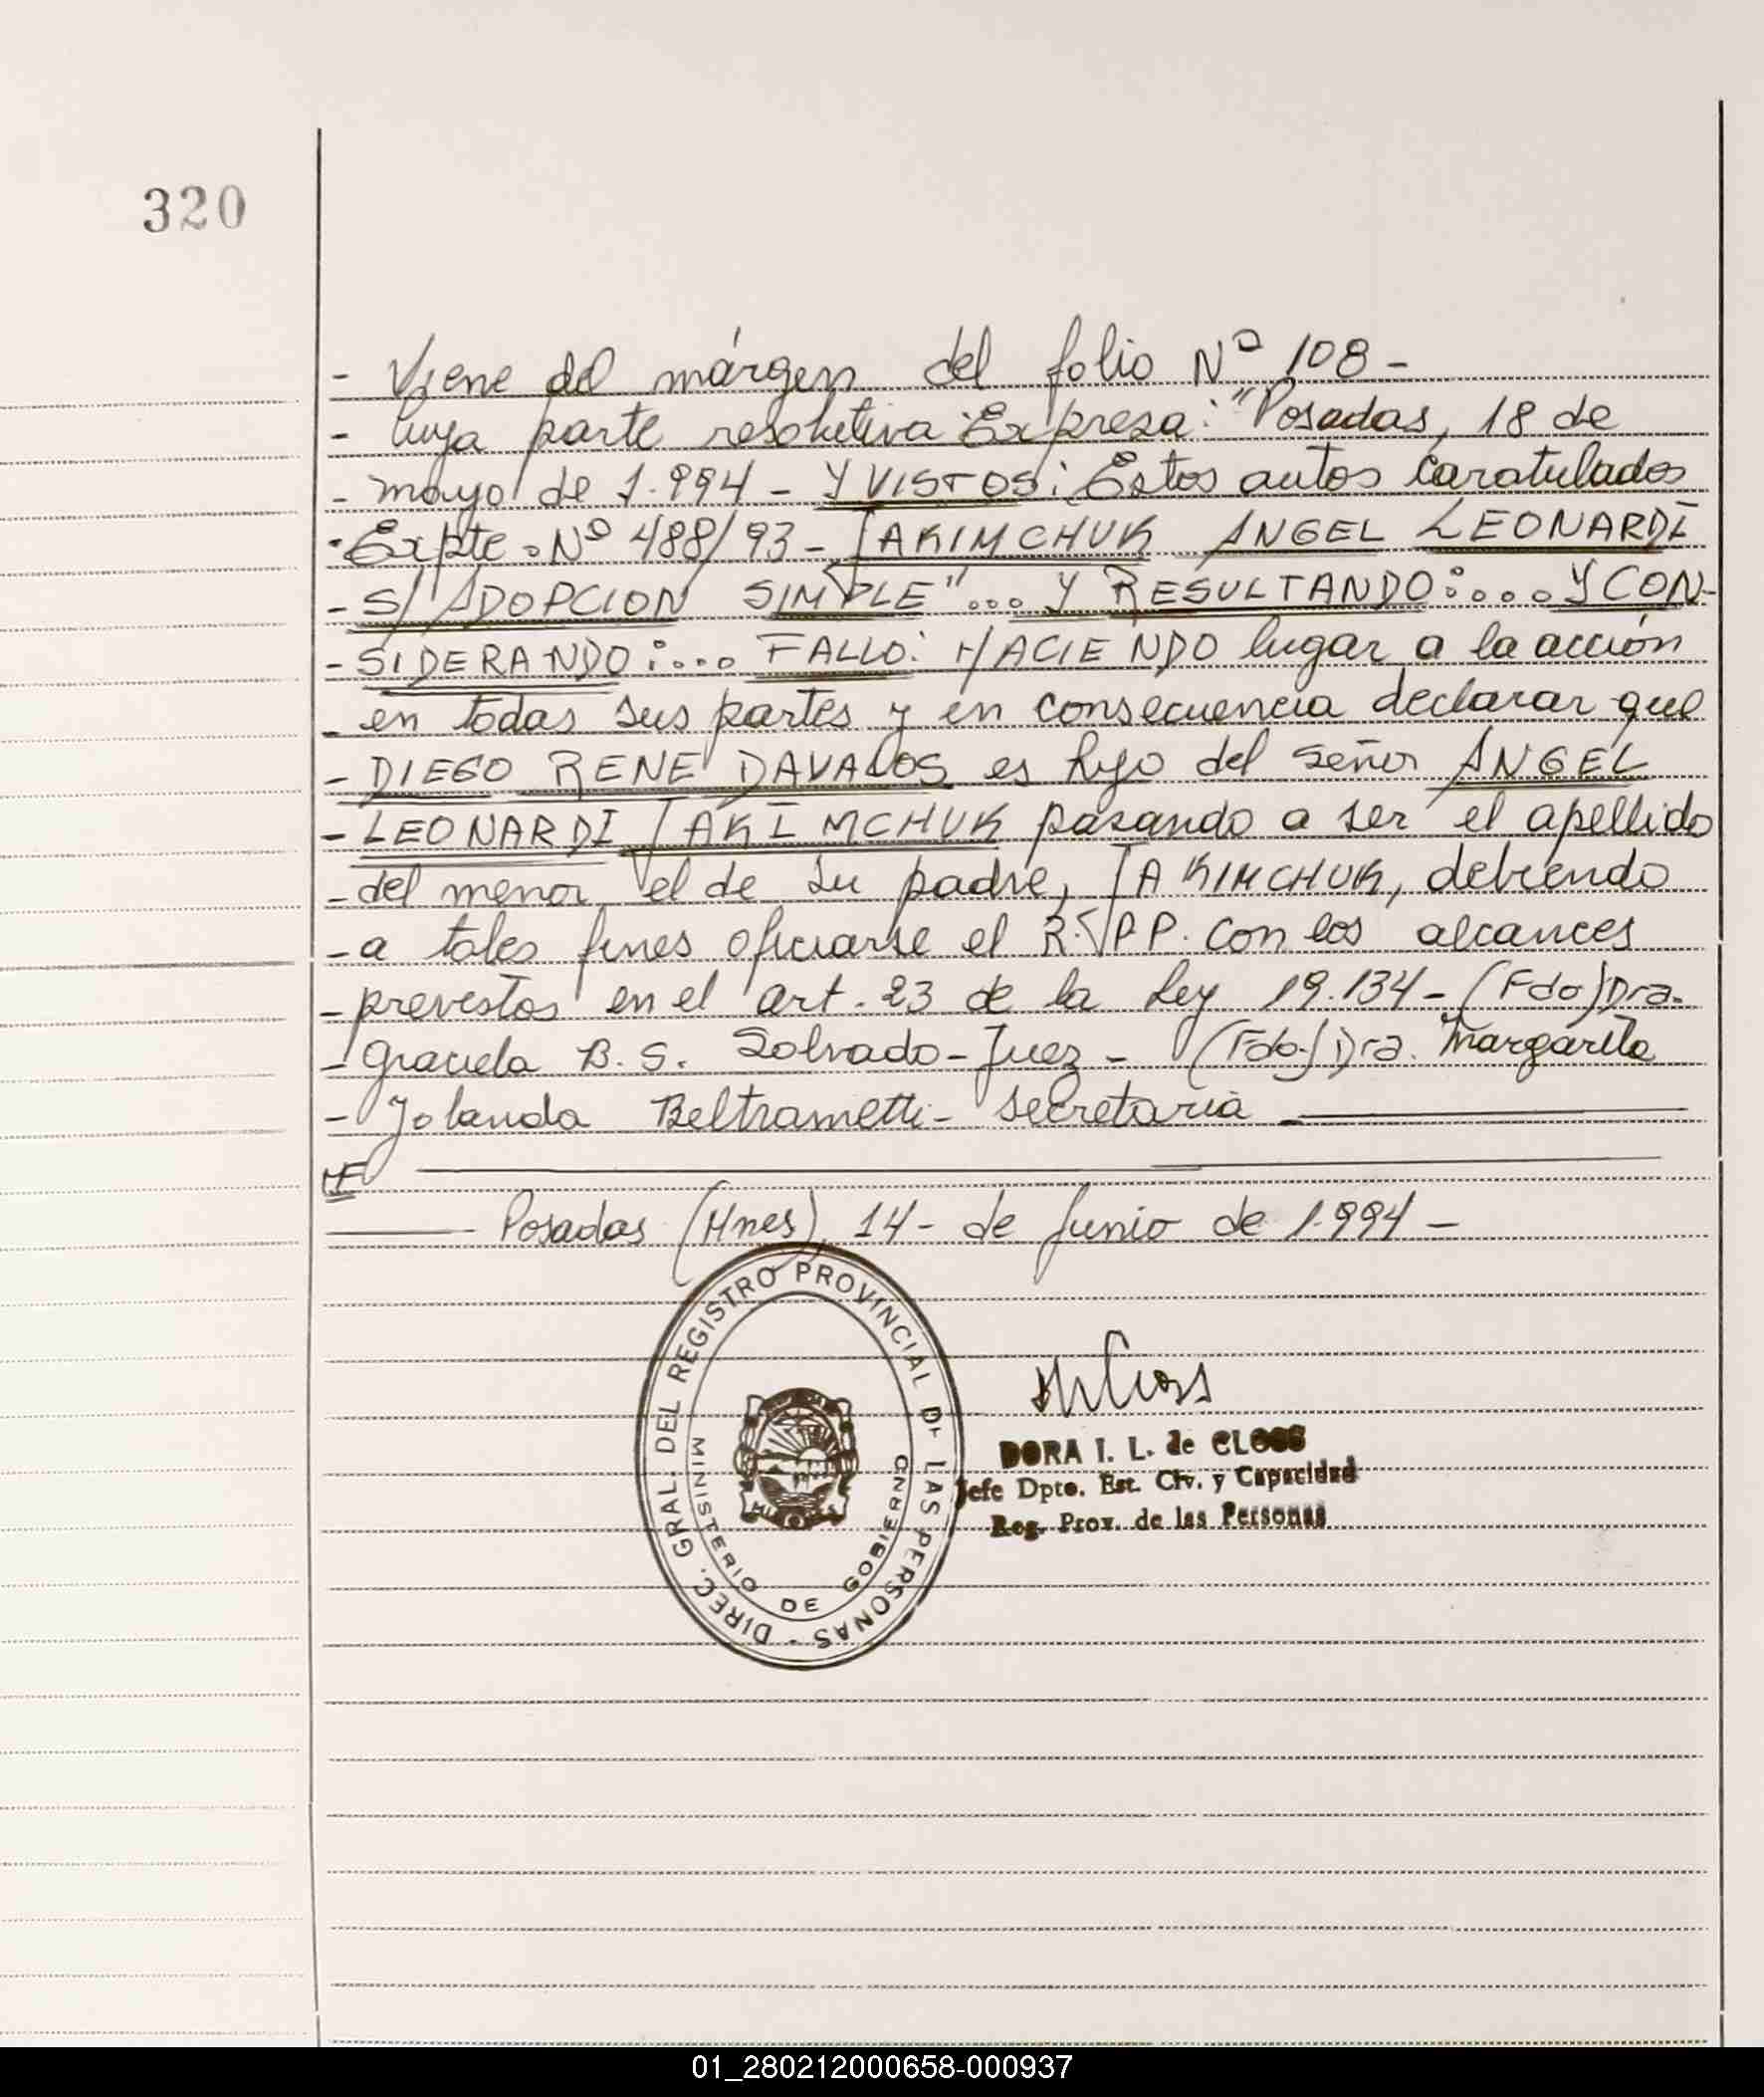 320
- Viene del márgen del folio Nº 108 -
- Cuya parte resolutiva Expresa: "Posadas, 18 de
- mayo de 1.994 - Y VISTOS: Estos autos caratulados
- Expte. Nº 488/93 - IAKIMCHUK ANGEL LEONARDI
- S/ ADOPCION SIMPLE"... Y RESULTANDO:... Y CON-
- SIDERANDO:... FALLO: HACIENDO lugar a la acción
- en todas sus partes y en consecuencia declarar que
- DIEGO RENE DAVALOS es hijo del señor ANGEL
- LEONARDI IAKIMCHUK pasando a ser el apellido
- del menor el de su padre, IAKIMCHUK, debiendo
- a tales fines oficiarse el R.P.P. con los alcances
- previstos en el art. 23 de la Ley 19.134 - (Fdo) Dra.
- Graciela B. S. Solvado - Juez - (Fdo.) Dra. Margarita
- Yolanda Beltrametti - Secretaria
Posadas (Mnes), 14 - de Junio de 1.994 -
DIREC. GRAL. DEL REGISTRO PROVINCIAL DE LAS PERSONAS -
MINISTERIO DE GOBIERNO
MISIONES
DORA I. L. de CLOSS
Jefe Dpto. Est. Civ. y Capacidad
Reg. Prov. de las Personas
01_280212000658-000937